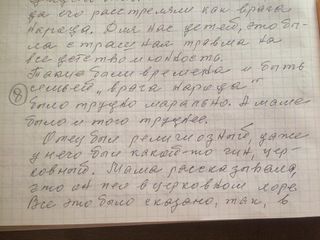 да его расстреляли как врага
народа. Для нас детей, это бы-
ла страшная травма на
все детство и юность.
Такие были времена и быть
семьёй "врага народа"
8
было трудно морально. А маме
было и того труднее.
Отец был религиозный, даже
у него был какой-то чин, цер-
ковный. Мама рассказывала,
что он пел в церковном хоре.
Все это было сказано, так, в